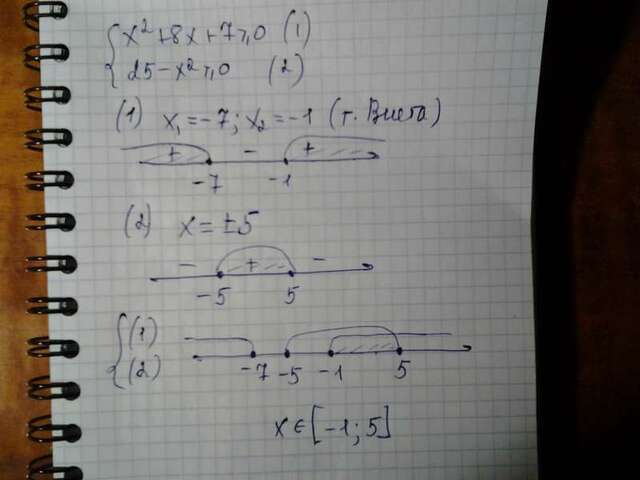 { x² + 8x + 7 ⩾ 0 (1)
{ 25 - x² ⩾ 0 (2)
(1) x₁ = -7; x₂ = -1 (т. Виета)
+ - +
-7 -1
(2) x = ±5
- + -
-5 5
{ (1)
{ (2)
-7 -5 -1 5
x ∈ [-1; 5]